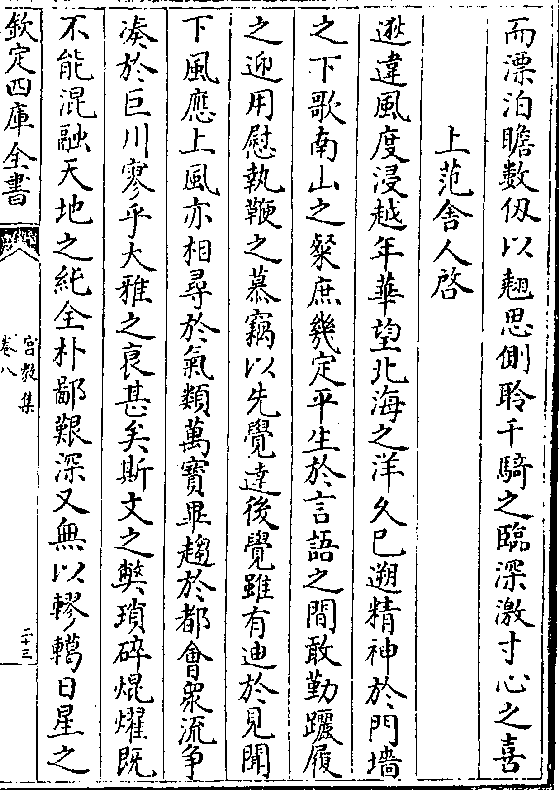 而漂泊瞻數仭以翹思側聆千騎之臨深激寸心之喜
上范舍人啓
逖違風度浸越年華望北海之洋久已遡精神於門墻
之下歌南山之粲庶幾定平生於言語之間敢勤躧履
之迎用慰執鞭之慕竊以先覺達後覺雖有迪於見聞
下風應上風亦相尋於氣類萬寶畢趨於都會衆流争
湊於巨川寥乎大雅之哀甚矣斯文之弊瑣碎焜燿既
不能混融天地之純全朴鄙艱深又無以轇轕日星之
欽定四庫全書
宫教集
卷八
二十三